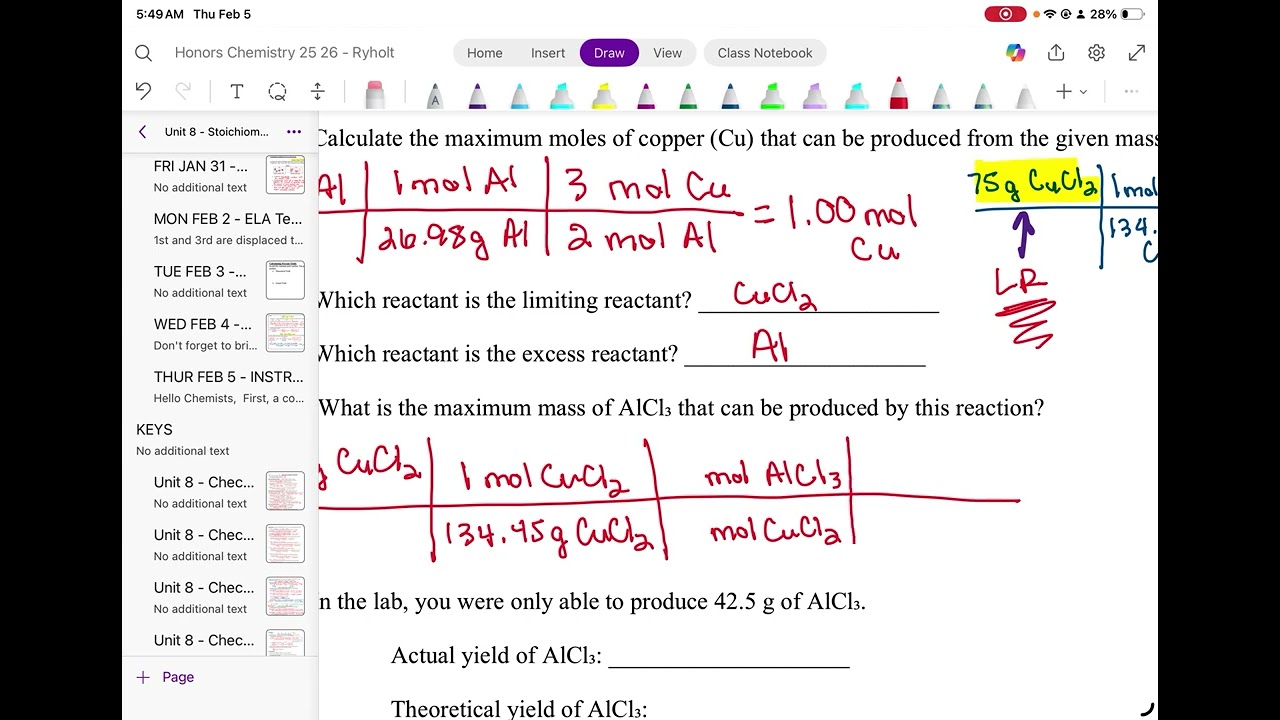 5:49 AM Thu Feb 5
28%
Honors Chemistry 25 26 - Ryholt
Home Insert Draw View Class Notebook
Unit 8 - Stoichiom...
FRI JAN 31 -...
No additional text
MON FEB 2 - ELA Te...
1st and 3rd are displaced t...
TUE FEB 3 -...
No additional text
WED FEB 4 -...
Don't forget to bri...
THUR FEB 5 - INSTR...
Hello Chemists, First, a co...
KEYS
No additional text
Unit 8 - Chec...
No additional text
Unit 8 - Chec...
No additional text
Unit 8 - Chec...
No additional text
Unit 8 - Chec...
Page
Calculate the maximum moles of copper (Cu) that can be produced from the given mass
Al 1 mol Al 3 mol Cu
26.98g Al 2 mol Al
= 1.00 mol
Cu
75g CuCl₂ 1 mol
134.
C
LR
Which reactant is the limiting reactant? CuCl₂
Which reactant is the excess reactant? Al
What is the maximum mass of AlCl₃ that can be produced by this reaction?
g CuCl₂ 1 mol CuCl₂ mol AlCl₃
134.45g CuCl₂ mol CuCl₂
In the lab, you were only able to produce 42.5 g of AlCl₃.
Actual yield of AlCl₃:
Theoretical yield of AlCl₃: